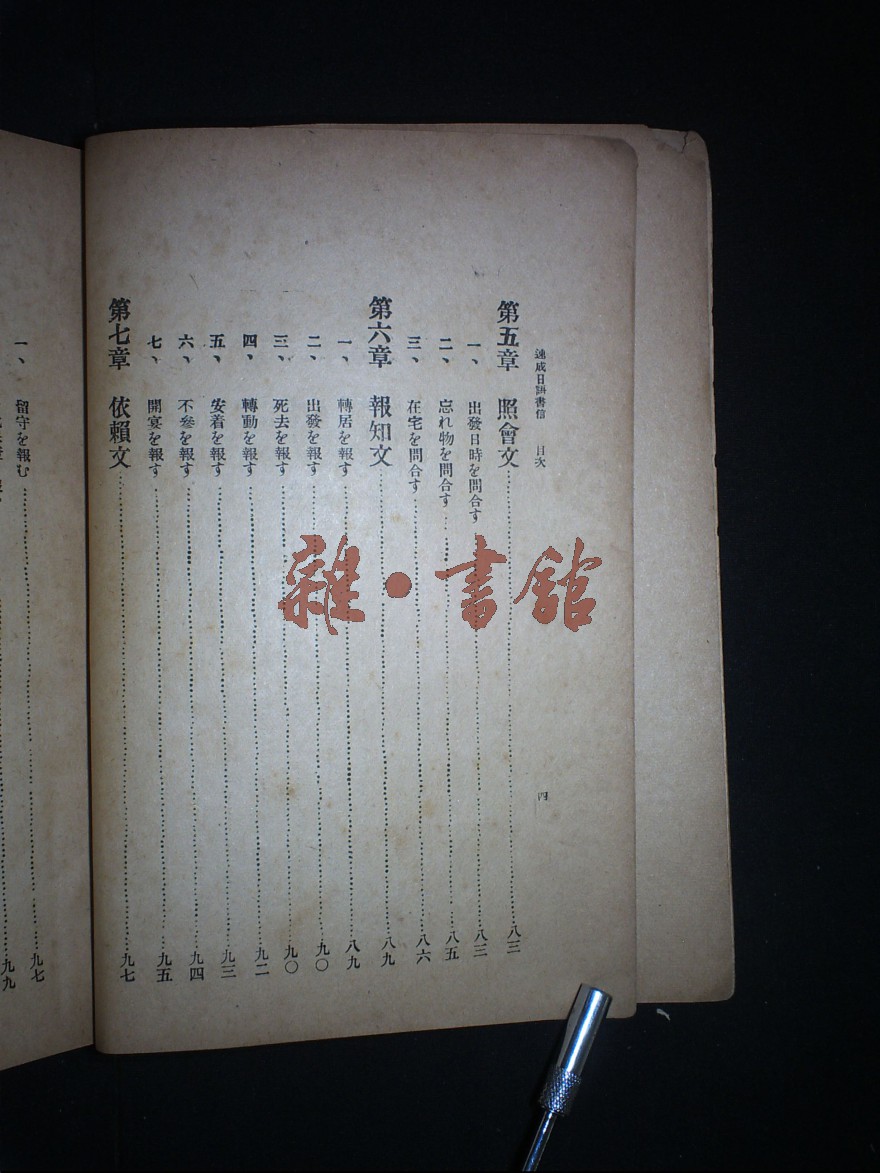 速成日語書信 目次
四
第五章 照會文 八三
一、 出發日時を問合す 八三
二、 忘れ物を問合す 八五
三、 在宅を問合す 八六
第六章 報知文 八九
一、 轉居を報す 八九
二、 出發を報す 九〇
三、 死去を報す 九〇
四、 轉動を報す 九二
五、 安着を報す 九三
六、 不參を報す 九四
七、 開宴を報す 九五
第七章 依賴文 九七
一、 留守を報む 九七
九九
雜·書館